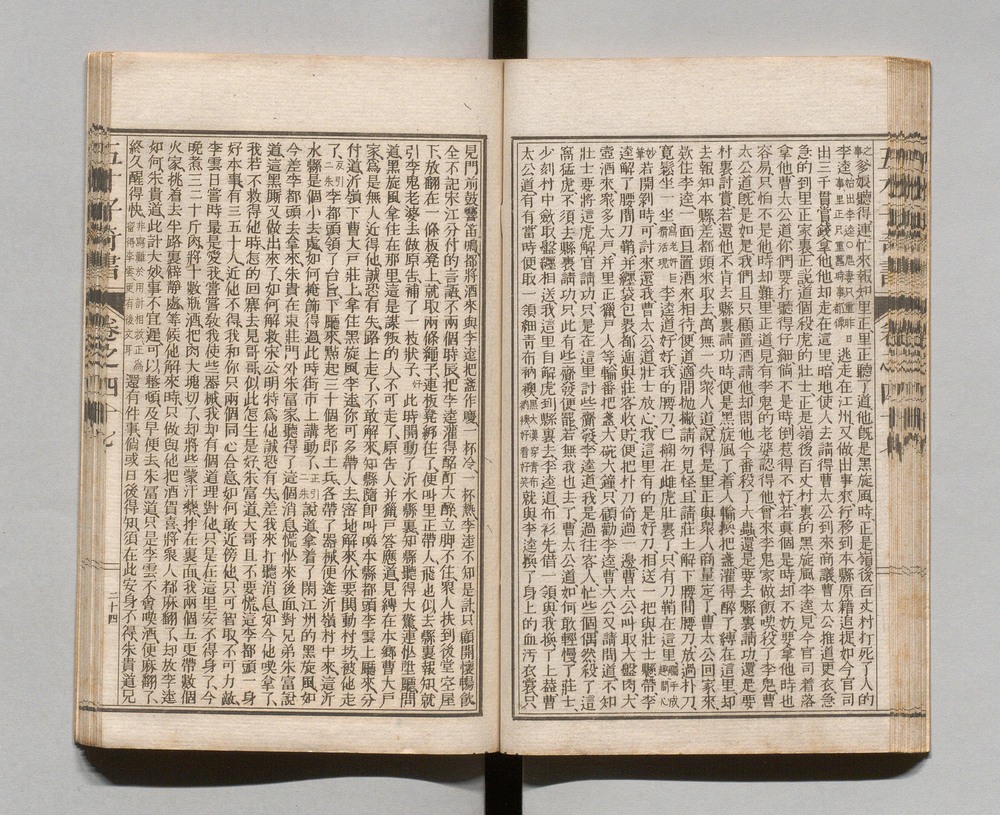 之爹娘聽得連忙來報知里正里正聽了道他既是黑旋風時正是嶺後百丈村打死了人的
李逵逃走在江州又做出事來行移到本縣原籍追捉如今官司
出三千貫賞錢拿他他却走在這里暗地使人去請得曹太公到來商議曹太公推道更衣急
急的到里正家里正說道個殺虎的壯士正是嶺後百丈村裏的黑旋風李逵見今官司着落
拿他曹太公道你們要打聽得仔細倘不是時倒惹得不好若真個是時却不妨要拿他時也
容易只怕不是他時却難里正道見有李鬼的老婆認得他曾來李鬼家做飯喫殺了李鬼曹
太公道既是如是我們且只顧置酒請他却問他今番殺了大蟲還是要去縣裏請功還是要
村裏討賞若還他不肯去縣裏請功時便是黑旋風了着人輪換把盞灌得醉了縛在這里却
去報知本縣差都頭來取去萬無一失衆人道說得是里正與衆人商量定了曹太公回家來
欵住李逵一面且置酒來相待便道適間拋撇請勿見怪且請莊士解下腰間腰刀放過朴刀
寬鬆坐一坐李逵道好好我的腰刀已搠在雌虎肚裏了只有刀鞘在這里
若開剝時可討來還我曹太公道壯士放心我這里有的是好刀相送一把與壯士懸帶李
逵解了腰間刀鞘并纏袋包裹都遞與莊客收貯便把朴刀倚過一邊曹太公叫取大盤肉大
壺酒來衆多大戶并里正獵戶人等輪番把盞大碗大鐘只顧勸李逵曹太公又請問道不知
壯士要將這虎解官請功只是在這里討些齎發李逵道我是過往客人忙些個偶然殺了這
窩猛虎不須去縣裏請功只此有些齎發便罷若無我也去了曹太公道如何敢輕慢了壯士
少刻村中歛取盤纏相送我這里自解虎到縣裏去李逵道布衫先借一領與我換了上葢曹
太公道有有當時便取一領細青布衲襖黑大漢穿青布衲襖好看好笑就與李逵換了身上的血汚衣裳只
見門前鼓響笛鳴都將酒來與李逵把盞作慶一杯冷一杯熱李逵不知是計只顧開懷暢飲
全不記宋江分付的言語不兩個時辰把李逵灌得酩酊大醉立脚不住衆人扶到後堂空屋
下放翻在一條板凳上就取兩條繩子連板凳綁住了便叫里正帶人飛也似去縣裏報知就
引李鬼老婆去做原告補了一枚狀子好此時閧動了沂水縣裏知縣聽得大驚連忙陞廳問
道黑旋風拿住在那里這是謀叛的人不可走了原告人并獵戶答應道見縛在本鄉曹大戶
家爲是無人近得他誠恐有失路上走了不敢解來知縣隨即叫喚本縣都頭李雲上廳來分
付道沂嶺下曹大戶莊上拿住黑旋風李逵你可多帶人去密地解來休要閧動村坊被他走
了李都頭領了台旨下廳來點起三十個老郎土兵各帶了器械便逩沂嶺村中來這沂
水縣是個小去處如何掩飾得過此時街市上講動了說道拿着了閙江州的黑旋風如
今差李都頭去拿來朱貴在東莊門外朱富家聽得了這個消息慌忙來後面對兄弟朱富說
道這黑廝又做出來了如何解救宋公明特爲他誠恐有失差我來打聽消息如今他喫拿了
我若不救得他時怎的回寨去見哥哥似此怎生是好朱富道大哥且不要慌這李都頭一身
好本事有三五十人近他不得我和你只兩個同心合意如何敢近傍他只可智取不可力敵
李雲日嘗時最是愛我嘗嘗教我使些器械我却有個道理對他只是在這里安不得身了今
晚煮三二十斤肉將十數瓶酒把肉大塊切了却將些蒙汗藥拌在裏面我兩個五更帶數個
火家挑着去半路裏僻靜處等候他解來時只做與他把酒賀喜將衆人都麻翻了却放李逵
如何朱貴道此計大妙事不宜遲可以整頓及早便去朱富道只是李雲不會喫酒便麻翻了
終久醒得快還有件事倘或日後得知須在此安身不得朱貴道兄
二十四